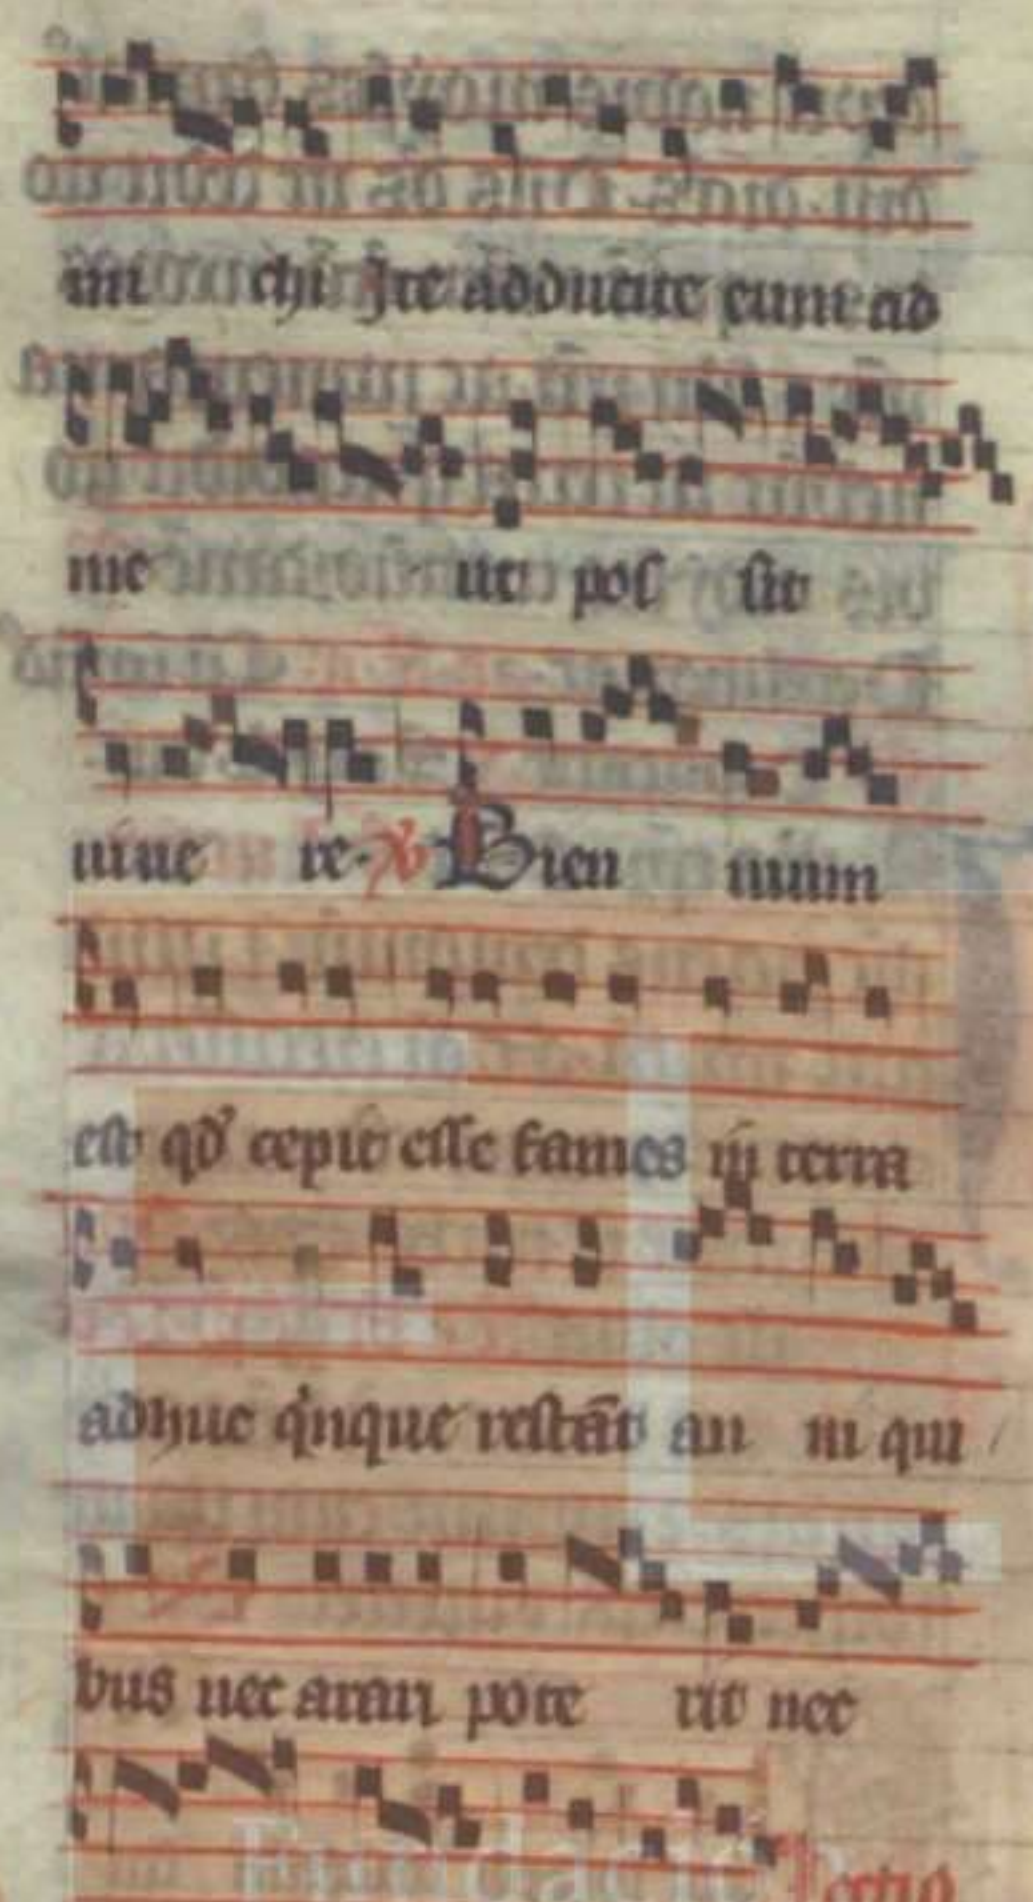 mi chi Ite adducite eum ad
me ut pos sit
uiue re. V Bien nium
est qd' cepit esse fames in terra
adhuc qinque restāt an ni qui
bus nec arari pote rit nec